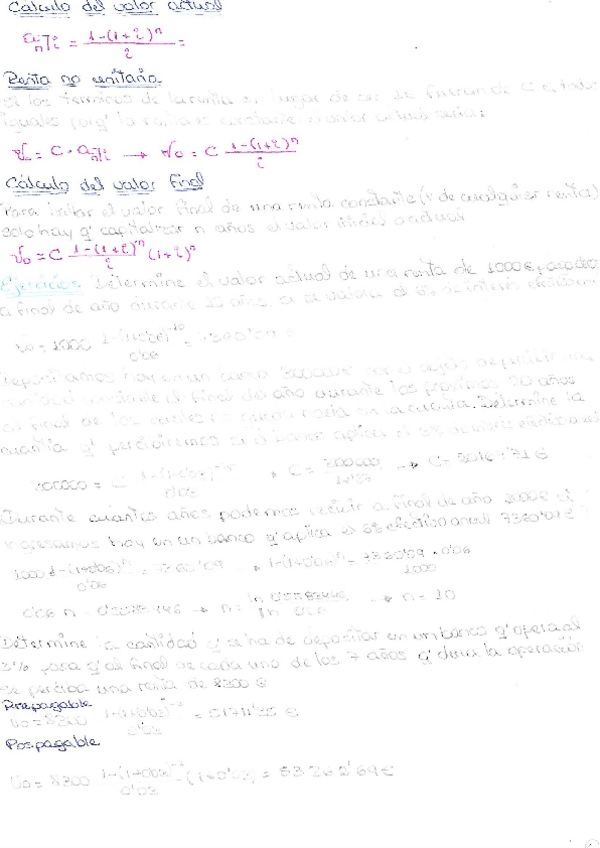 Cálculo del valor actual
a n┐i = 1-(1+i)^n / i =
Renta no unitaria
Si los términos de la renta en lugar de ser 1€ fueran de C € todos
iguales porq' la renta es constante el valor actual sería:
V0 = C · a n┐i → V0 = C 1-(1+i)^n / i
Cálculo del valor final
Para hallar el valor final de una renta constante (y de cualquier renta)
solo hay q' capitalizar n años el valor inicial o actual
V0 = C 1-(1+i)^n / i (1+i)^n
Ejercicios Determine el valor actual de una renta de 1000€,
a final de año durante 10 años, si se valora al 6% de interés efectivo
V0 = 1000 1-(1+0'06)^-10 / 0'06 = 7360'09 €
Depositamos hoy en un banco
al final del año durante los próximos 20 años
al final de los cuales no queda nada en la cuenta. Determine la
cuantía q' percibiremos si el banco aplica el
C = → C = 20167'71 €
Durante cuantos años podemos recibir a final de año 1000€ si
ingresamos hoy en un banco q' aplica el 6% efectivo anual 7360'09€?
1000 1-(1+0'06)^-n / 0'06 = 7360'09 → 1-(1+0'06)^-n = 7360'09 · 0'06 / 1000
→ n = 10
Determine la cantidad q' se ha de depositar en un banco q' opera al
3% para q' al final de cada uno de los 7 años q' dura la operación
se perciba una renta de 8300 €
Prepagable
V0 = 8300 1-(1+0'03)^-7 / 0'03 = 51711'35 €
Pospagable
V0 = 8300 1-(1+0'03)^-7 / 0'03 · (1+0'03) = 53262'69€